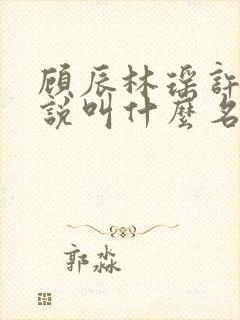 顾辰林瑶許
說叫什麼名
郭淼